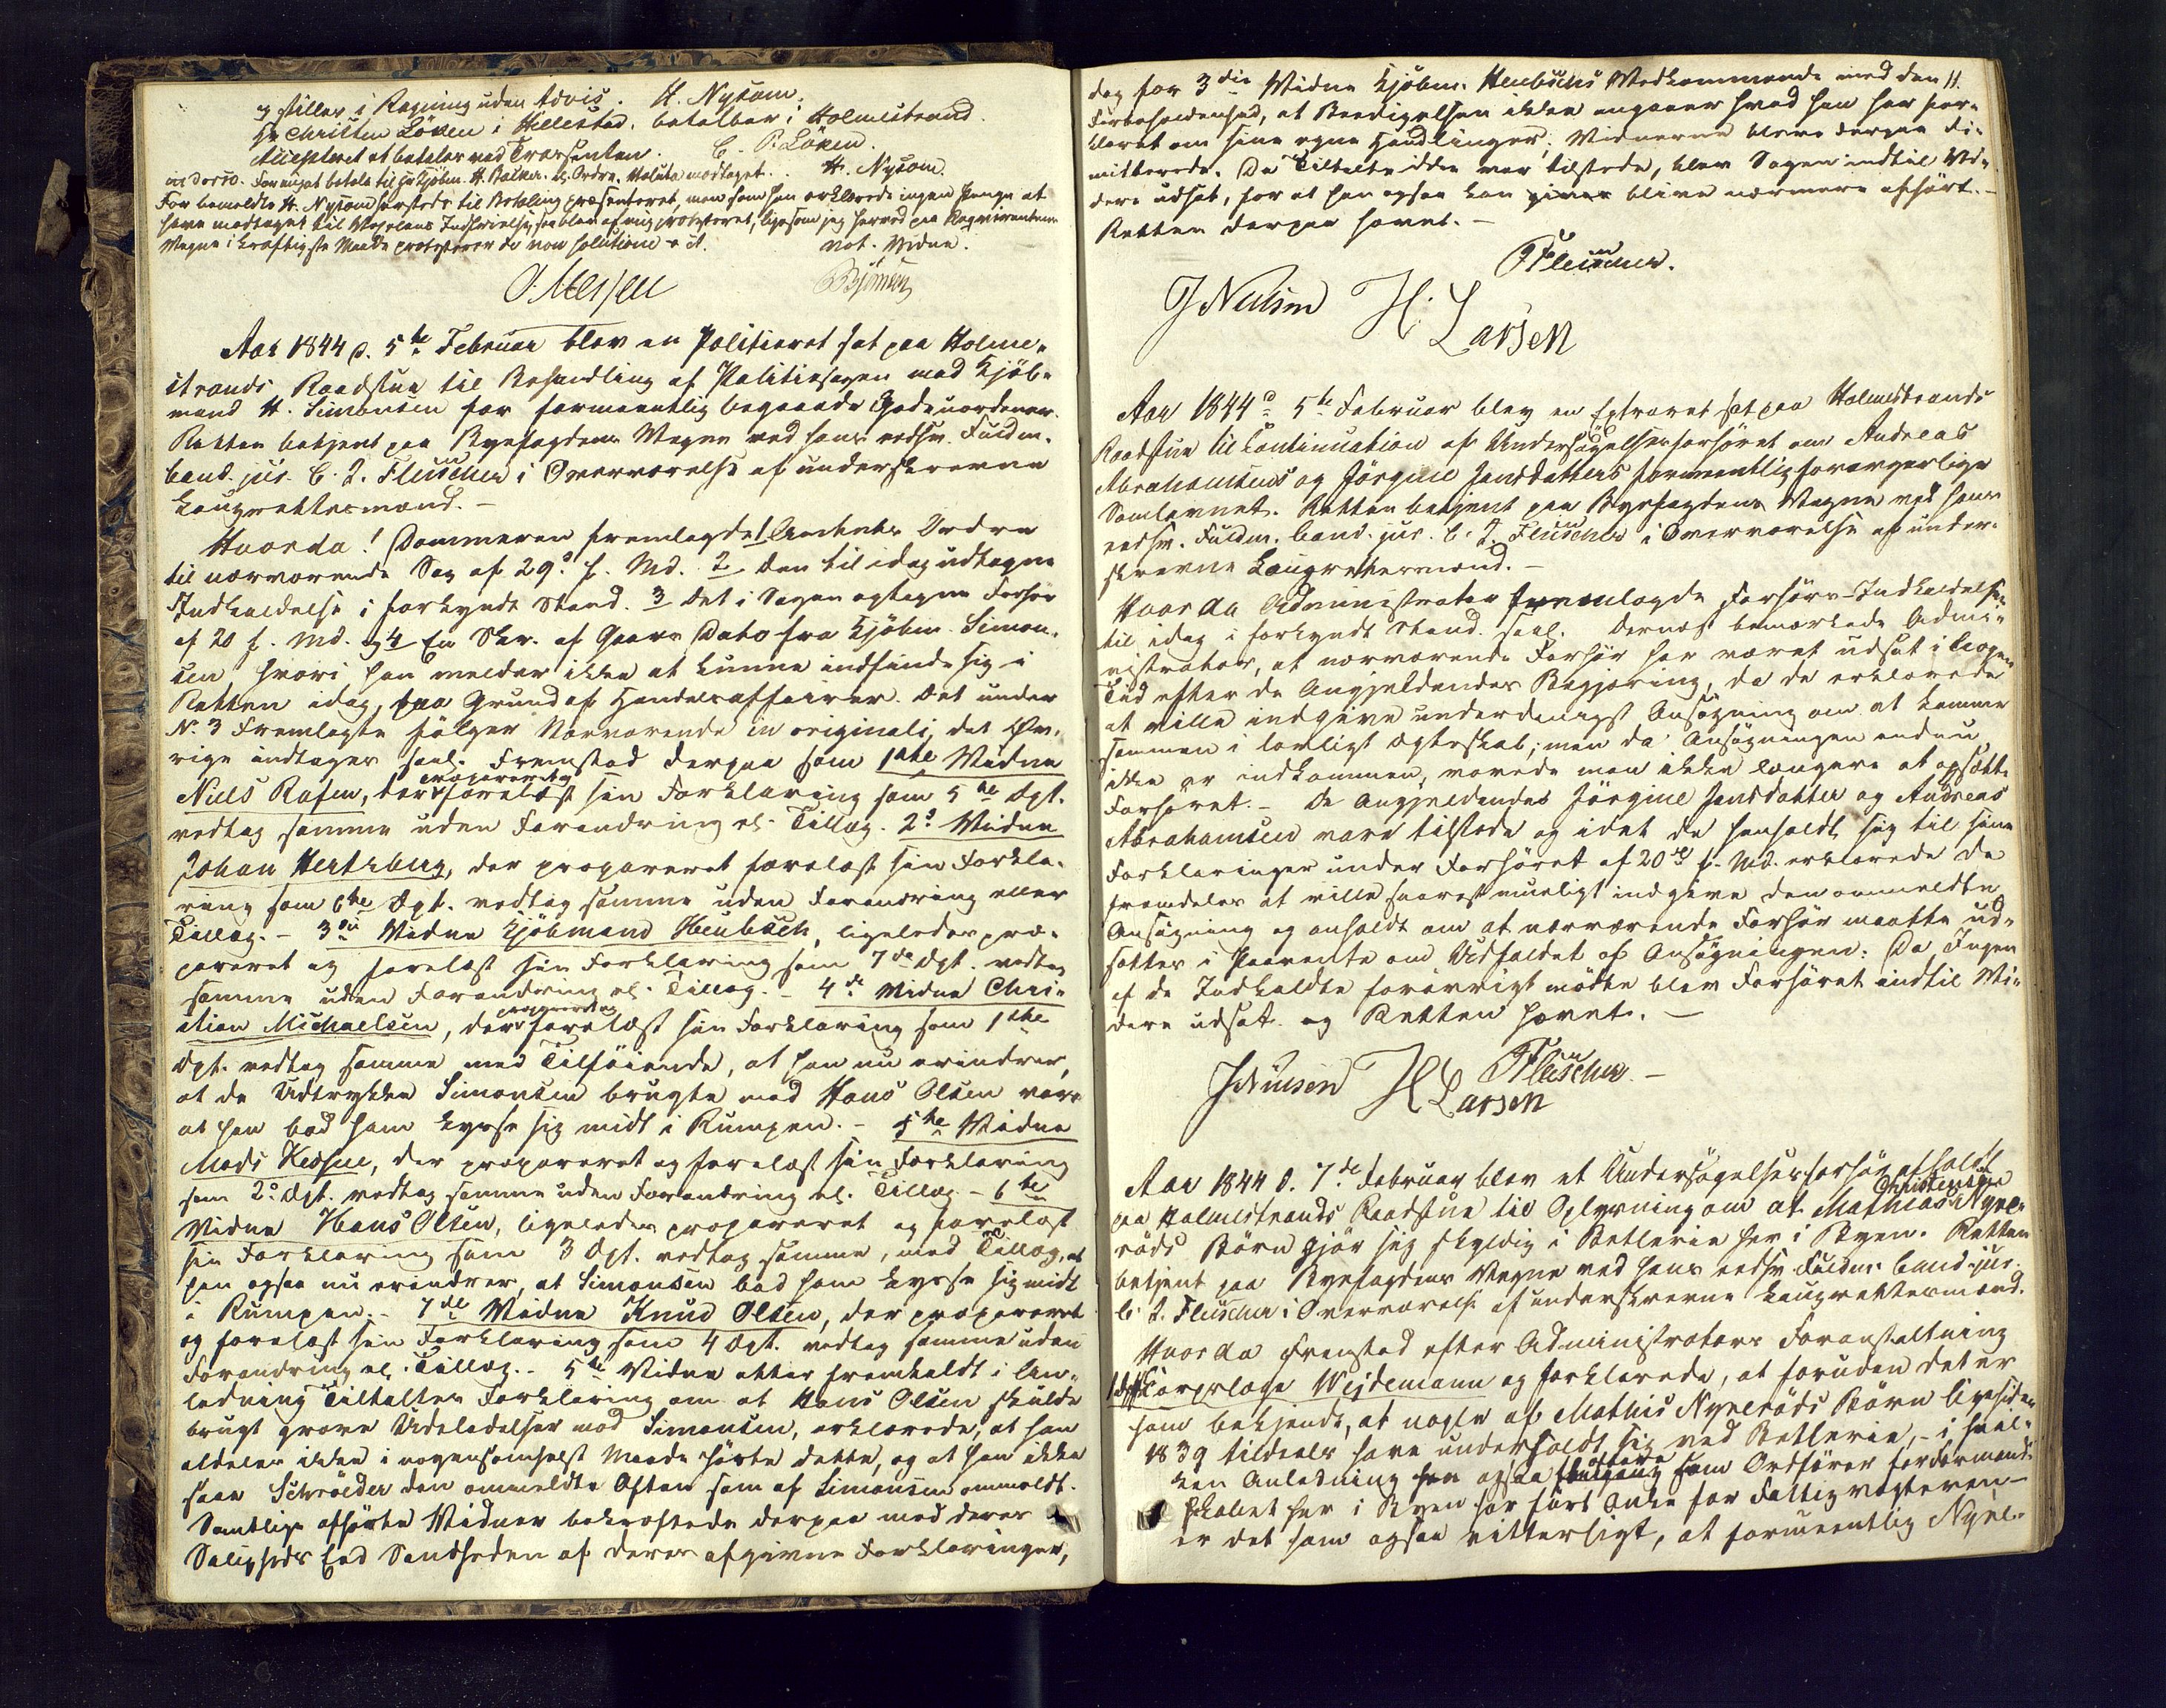 og stilles i Regning uden Advis. H. Nysom.
Hr Christen Löken i Hillestad. betalbar i Holmestrand.
Accepteret at betales ved Trassenten. C. P. Löken.
in dorso. For mig at betale til Hr Kjøbm. H. Balker. el. Ordre. Valuta modtaget. H. Nysom.
For bemeldte H. Nysom foretedes til Betaling præsenteret, men som han erklærede ingen Penge at
have modtaget til Vexelens Indfrielse, saa blev af mig protesteret, ligesom jeg herved paa Reqvirentens
Vegne i kraftigste Maade protesterer de non solutione e ct. not. Vidne.
O. Meyer Björnsen
Aar 1844 d. 5te Februar blev en Politieret sat paa Holme-
strands Raadstue til Behandling af Politiesagen mod Kjöb-
mand H. Simonsen for formeentlig begaaede Gadeuordener.
Retten betjent paa Byefogdens Vegne ved hans eedsv. Fuldm.
Cand. jur. C. J. Fleischer i Overværelse af underskrevne
Laugrettesmænd. -
Hvorda! Dommeren fremlagde 1 Amtets Ordre
til nærværende Sag af 29d f. Md. 2 den til idag udtagne
Indkaldelse i forkyndt Stand. 3 det i Sagen optagne Forhör
af 20 f. Md. og 4 En Skr. af Gaars Dato fra Kjöbm. Simon-
sen hvori han melder ikke at kunne indfinde sig i
Retten idag, paa Grund af Handelsaffairer. Det under
No 3 Fremlagte fölger Nærværende in originali; det Öv-
rige indtages saal. Fremstod derpaa som 1ste Vidne
Niels Rafen, der præpareret og forelæst sin Forklaring som 5te Dpt.
vedtog samme uden Forandring el. Tillæg. 2d Vidne
Johan Hertzberg, der præpareret forelæst sin Forkla-
ring som 6te Dpt. vedtog samme uden Forandring eller
Tillæg. - 3die Vidne Kjöbmand Heubsch, ligeledes præ-
pareret og forelæst sin Forklaring som 7de Dpt. vedtog
samme uden Forandring el. Tillæg. - 4de Vidne Chri-
stian Michaelsen, der præpareret og forelæst sin Forklaring som 1ste
Dpt. vedtog samme med Tilföiende, at han nu erindrer,
at de Udtrykke Simonsen brugte mod Hans Olsen vare
at han bad ham kysse sig midt i Rumpen. - 5te Vidne
Mads Hedsue, der præpareret og forelæst sin Forklaring
som 2d Dpt. vedtog samme uden Forandring el. Tillæg - 6te
Vidne Hans Olsen, ligeledes præpareret og forelæst
sin Forklaring som 3 Dpt. vedtog samme, med Tillæg, at
han ogsaa nu erindrer, at Simonsen bad ham kysse sig midt
i Rumpen. - 7de Vidne Knud Olsen, der præpareret
og forelæst sin Forklaring som 4 Dpt. vedtog samme uden
Forandring el. Tillæg. - 5te Vidne atter fremkaldt i An-
ledning Tiltaltes Forklaring om at Hans Olsen skulde
brugt grove Udeladelser mod Simonsen, erklærede, at han
aldeles ikke i nogensomhelst Maade hörte dette, og at han ikke
saae Schröeder den ommeldte Aften som af Simonsen ommeldt.
Samtlige afhörte Vidner bekræftede derpaa med deres
Saligheds Eed Sandheden af deres afgivne Forklaringer,
dog for 3die Vidne Kjöbm. Heubschs Vedkommende med den 11.
Forbeholdenhed, at Beedigelsen ikke angaaer hvad han har for-
klaret om sine egne Handlinger. Vidnerne bleve derpaa di-
mitterede. Da Tiltalte ikke var tilstede, blev Sagen indtil Vi-
dere udsat, for at han ogsaa kan blive nærmere afhört. -
Retten derpaa hævet. -
Fleischer.
J Nielsen H. Larsen
Aar 1844 d 5te Februar blev en Extraret sat paa Holmestrands
Raadstue til Continuation af Undersögelsesforhöret om Andreas
Abrahamsens og Jörgine Jansdatters formeentlig forargerlige
Samlevnet. Retten betjent paa Byefogdens Vegne ved hans
eedsv. Fuldm. Cand. jur. C. J. Fleischer i Overværelse af under-
skrevne Laugrettesmænd. -
Hvorda Administrator fremlagde Forhörs-Indkaldelsen
til idag i forkyndt Stand. saal. Dernæst bemærkede Admi-
nistrator, at nærværende Forhör har været udsat i længere
Tid efter de Angjeldendes Begjæring, da de erklærede
at ville indgive underdanigst Ansögning om at komme
sammen i lovligt Ægteskab; men da Ansögningen endnu
ikke er indkommen, vovede man ikke længere at opsætte
Forhöret. - De Angjeldende Jörgine Jansdatter og Andreas
Abrahamsen vare tilstede og idet de henholdt sig til sine
Forklaringer under Forhöret af 20de f. Md. erklærede de
fremdeles at ville snarest mueligt indgive den ommeldte
Ansögning og anholdt om at nærværende Forhör maatte ud-
sættes i Paavente om Udfaldet af Ansögningen. Da Ingen
af de Indkaldte forövrigt mödte blev Forhöret indtil Vi-
dere udsat og Retten hævet. -
Fleischer. -
J Nielsen H Larsen
Aar 1844 d. 7de Februar blev et Undersögelsesforhör afholdt
paa Holmestrands Raadstue til Oplysning om at Mathias Christensen Nyre-
röds Börn gjör sig skyldig i Betlerie her i Byen. Retten
betjent paa Byefogdens Vegne ved hans eedsv. Fuldm. Cand. jur.
C. J. Fleischer i Overværelse af underskrevne Laugrettesmænd.
Hvorda Fremstod efter Administrators Foranstaltning
Corpslæge Weidemann og forklarede, at foruden det er
ham bekjendt, at nogle af Mathis Nyreröds Börn ligesiden
1839 tildeels have underholdt sig ved Betlerie, - i hvil-
ken Anledning han ogsaa som Ordförer Formand-
skabet her i Byen har fört Anke for Fattigvogteren -
er det ham ogsaa vitterligt, at formeentlig Nyre-